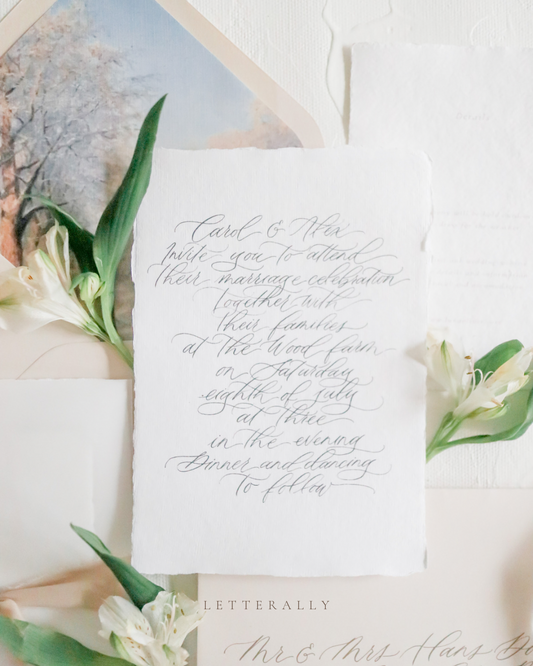 Carol & Alex
Invite you to attend
Their marriage celebration
together with
Their families
at The Wood farm
on Saturday
eighth of july
at Three
in the evening
Dinner and dancing
To follow
LETTERALLY
Mr & Mrs Hans